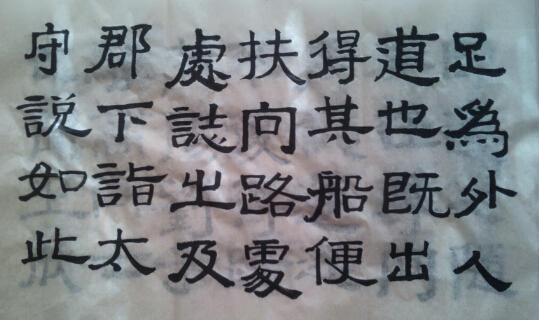 足爲外人
道也既出
得其船便
扶向路䖏
處誌之及
郡下詣太
守説如此